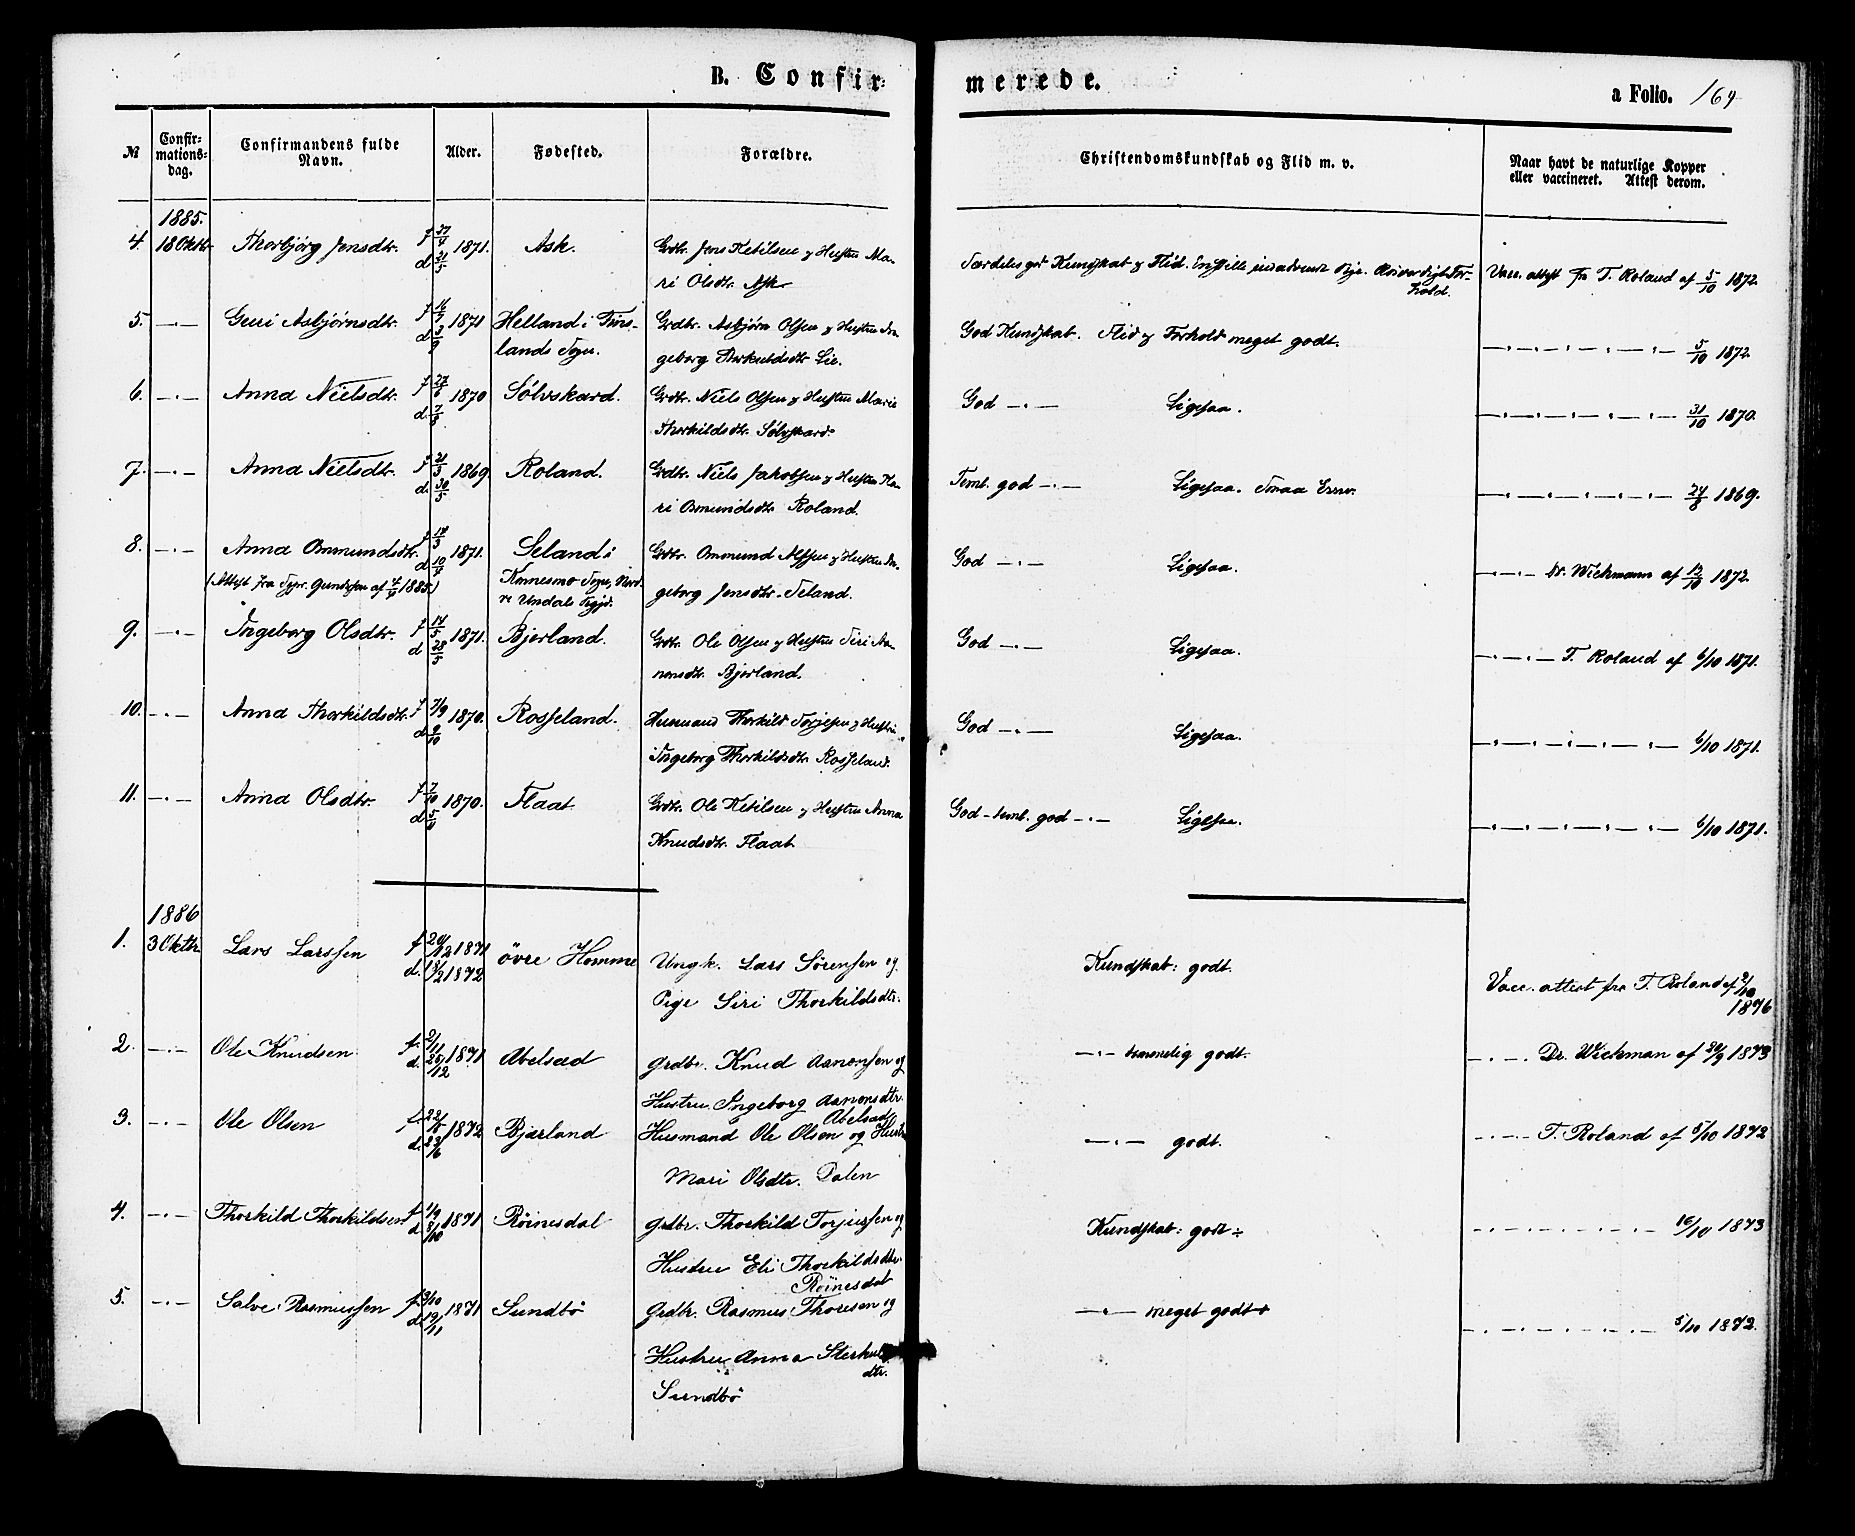 B. Confirmerede.
a Folio. 164
№ Confirmationsdag. Confirmandens fulde Navn. Alder. Fødested. Forældre. Christendomskundskab og Flid m. v. Naar havt de naturlige Kopper eller vaccineret. Attest derom.
1885.
4. 18 Oktbr. Thorbjørg Jensdtr. f 27/4 1871. Ask. Grdbr. Jens Ketilsen og Hustru Ma-
d 21/5 ri Olsdtr. Ask Særdeles god Kundskab og Flid. Forhold. Vacc. attest fra T. Roland af 5/10 1872.
5. —·— Guri Asbjørnsdtr. f 16/7 1871 Helland i Fins- Grdbr. Asbjørn Olsen og Hustru In- God Kundskab. Flid og Forhold meget godt.
d 3/9 lands Sogn. geborg Thorkildsdtr. Lie. —·—·—·—·— 5/10 1872.
6. —·— Anna Nielsdtr. f 27/6 1870 Sølvskard. Grdbr. Niels Olsen og Hustru Marie God —·— Ligesaa. —·—·—·—·— 31/10 1870.
d. Thorkildsdtr. Sølvskard.
7. —·— Anna Nielsdtr. f 21/3 1869. Roland. Grdbr. Niels Jakobsen og Hustru Ka- Teml. god —·— Ligesaa. Smaa Evner.
d. 30/5 ri Osmundsdtr. Roland. —·—·—·—·— 24/8 1869.
8. —·— Anna Ommundsdtr. f 14/3 1871. Seland i Grdbr. Ommund Alfsen og Hustru In- God —·— Ligesaa.
(Attest fra Sgpr. Gundersen af 1885.) d 10/4 Konnesmo Sogn, Nord- geborg Jensdtr. Seland. —·—·— Dr. Wickmann af 12/10 1872.
re Undals Prgjd.
9. —·— Ingeborg Olsdtr. f 14/5 1871. Bjerland. Grdbr. Ole Olsen og Hustru Siri Aa- God —·— Ligesaa.
d 28/5 nensdtr. Bjerland. —·—·— T. Roland af 6/10 1871.
10. —·— Anna Thorkildsdtr. f 7/9 1870. Rosseland. Husmand Thorkild Torjesen og Hustru God —·— Ligesaa.
d 9/10 Ingeborg Thorkildsdtr. Rosseland. —·—·—·—·— 6/10 1871.
11. —·— Anna Olsdtr. f 7/10 1870. Flaat. Grdbr. Ole Ketilsen og Hustru Anna God - teml. god —·— Ligesaa.
d. Knudsdtr. Flaat —·—·—·—·— 6/10 1871.
1886
1. 3 Oktbr. Lars Larssen f 29/12 1871 øvre Homme Ungk. Lars Sørensen og Kundskab: godt.
d. 18/2 1872 Pige Siri Thorkildsdtr. Vacc. attest fra T. Roland af 2/10
1876
2. —·— Ole Knudsen f. 2/11 1871 Abelsæd Grdbr. Knud Aanensen og —·— temmelig godt. —·—·— Dr. Wickman af 20/9 1873
d. 26/12 Hustru Ingeborg Aanensdtr.
Abelsæd
3. —·— Ole Olsen f. 22/5 1872 Bjærland Husmand Ole Olsen og Hustr. —·— godt. —·—·— T. Roland af 5/10 1872
d. 23/6 Mari Olsdtr. Dalen
4. —·— Thorkild Thorkildsen f 1/9 1871 Röinesdal Grdbr. Thorkild Torjussen og Kundskab: godt ÷ —·—·—·—·— 16/10 1873
d 8/10 Hustru Eli Thorkildsdtr.
Röinesdal
5. —·— Salve Rasmussen f 3/10 1871 Sundbö Grdbr. Rasmus Thoresen og —·— meget godt + —·—·—·—·— 5/10 1872.
d 19/11 Hustru Anna
dtr.
Sundbö